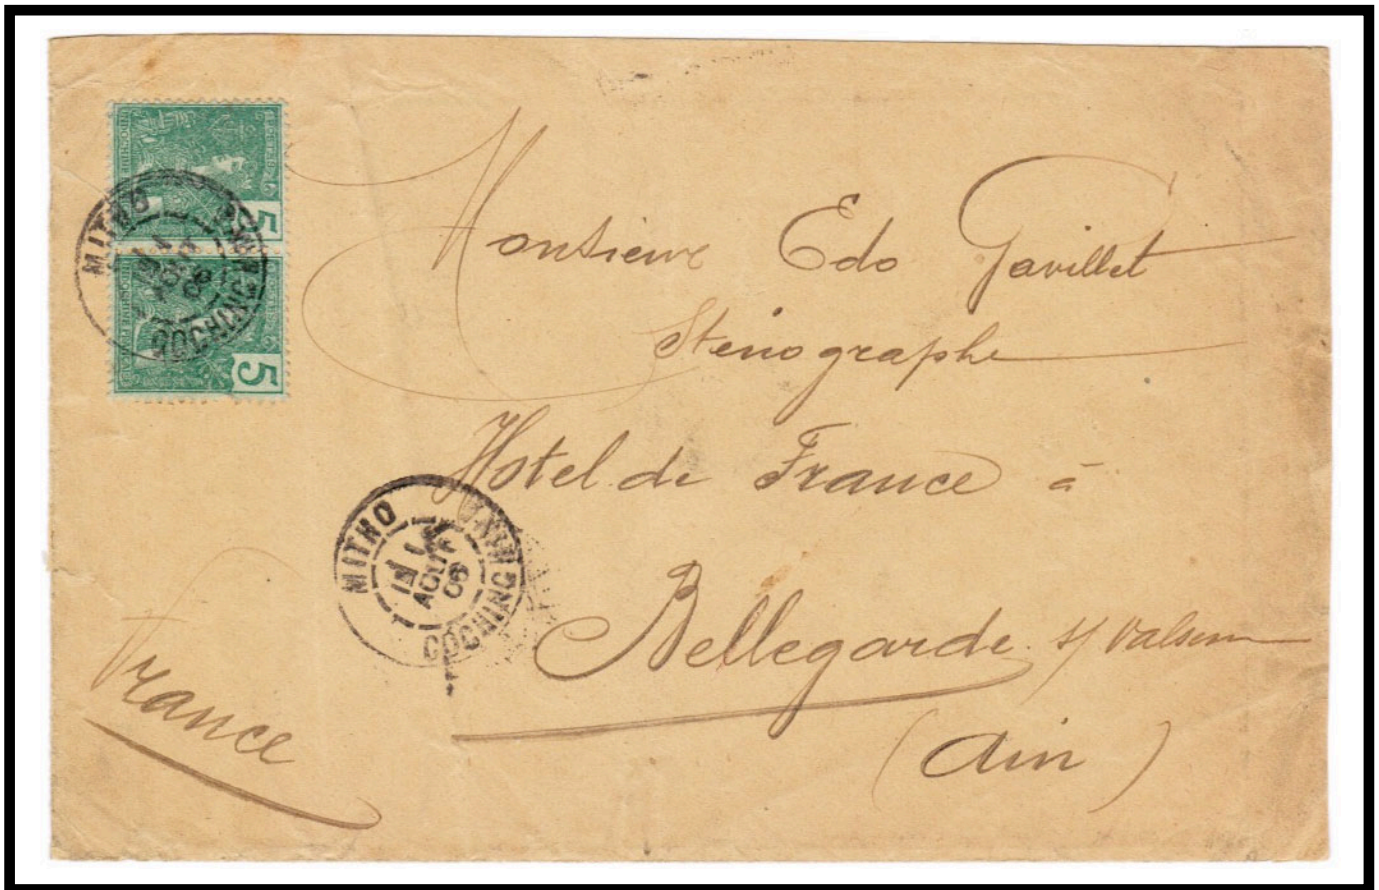 5
5
MITHO
COCHINCHINE
Monsieur Edo Gavillet
Sténographe
Hotel de France à
MITHO
AOUT
06
COCHINCHINE
Bellegarde s/ Valserine
(Ain)
France